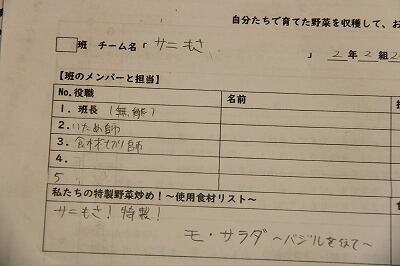 自分たちで育てた野菜を収穫して、お
班 チーム名「 サニもさ 」 2年 2組 2
【班のメンバーと担当】
No. 役職 名前 担
1. 班長 (無能)
2. いため師
3. 食材切り師
4.
5
私たちの特製野菜炒め!~使用食材リスト~
サニもさ! 特製!
モ・サラダ ~バジルを